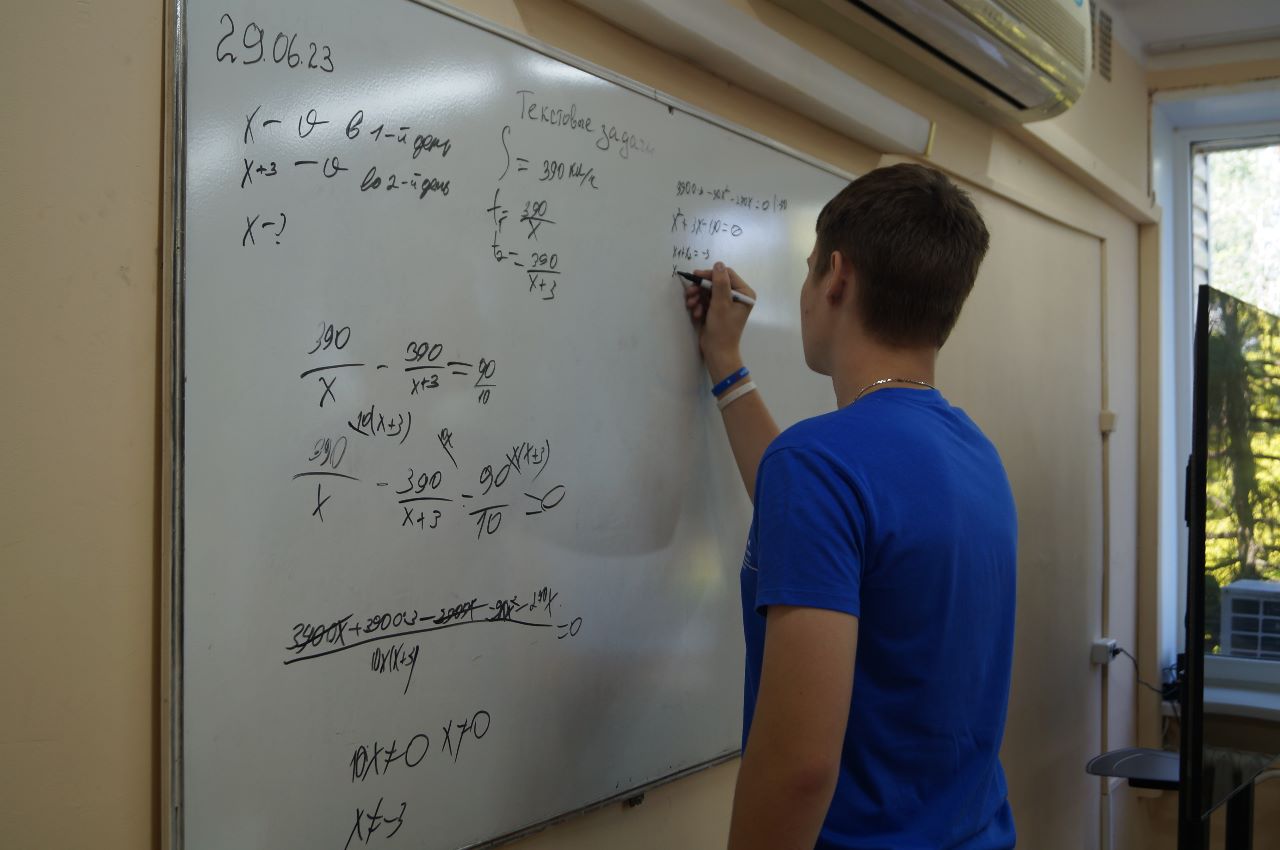 29.06.23
x - v в 1-й день
x+3 - v во 2-й день
x - ?
Текстовые задачи
S = 390 км/ч
t₁ = 390/x
t₂ = 390/(x+3)
390/x - 390/(x+3) = 90/10
10(x+3) x(x+3)
390/x - 390/(x+3) = 90/10 = 0
3900x + 3900·3 - 3900x - 90x² - 270x = 0
10x(x+3)
10x ≠ 0 x ≠ 0
x ≠ -3
3900·3 - 90x² - 270x = 0 | :90
x² + 3x - 130 = 0
x₁+x₂ = -3
x